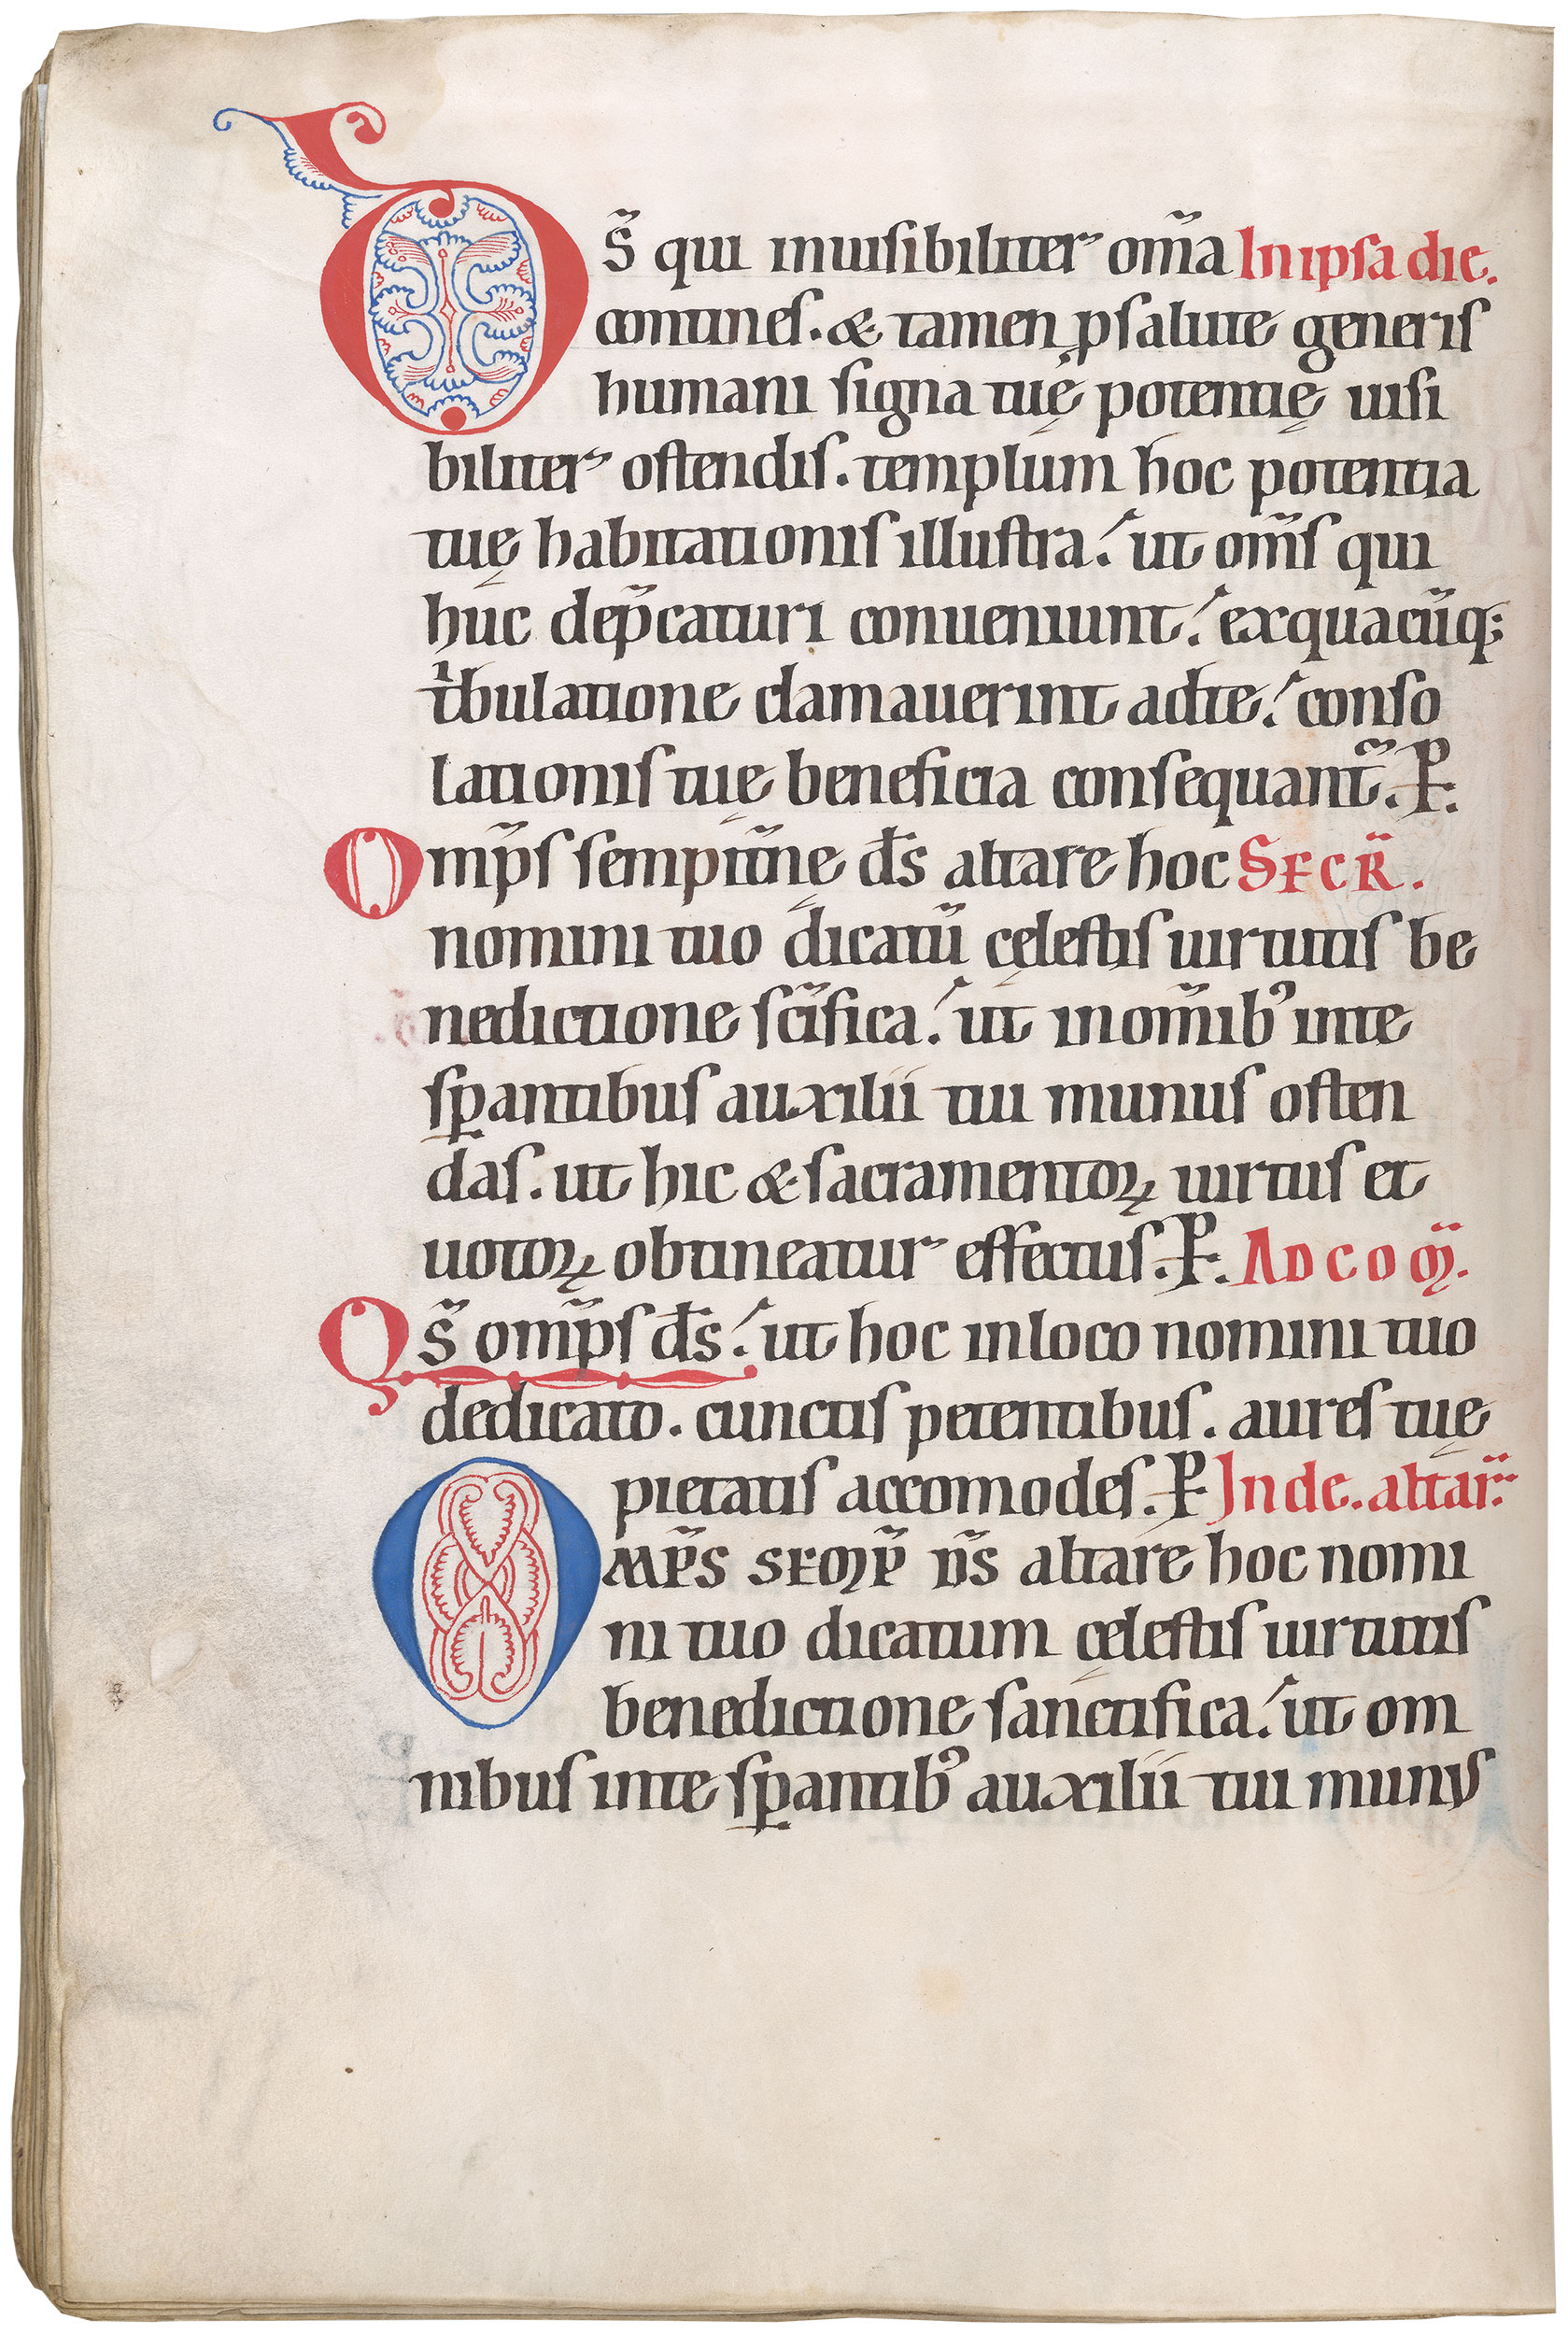 Ds̃ qui inuisibiliter om̃a In ipsa die.
contines. & tamen ꝓ salute generis
humani signa tuę potentię uisi
biliter ostendis. templum hoc potentia
tuę habitationis illustra. ut om̃s qui
huc dep̃caturi conueniunt. ex quacũq;
t̾bulatione clamauerint ad te. conso
lationis tuę beneficia consequant̃. P.
Omp̃s sempit̃nę d̃s altare hoc SECR̃.
nomini tuo dicatũ cęlestis uirtutis be
nedictione sc̃ifica. ut in om̃ib᾽ in te
sꝑantibus auxilii tui munus osten
das. ut hic & sacramentoꝝ uirtus et
uotoꝝ obtineatur effectus. P. AD COM̃.
Qs̃ omp̃s d̃s. ut hoc in loco nomini tuo
dedicato. cunctis petentibus. aures tuę
pietatis accomodes. P In de. altar̃.
OMP̃S SEMP̃ D̃S altare hoc nomi
ni tuo dicatum cęlestis uirtutis
benedictione sanctifica. ut om
nibus in te sꝑantib᾽ auxilii tui munus